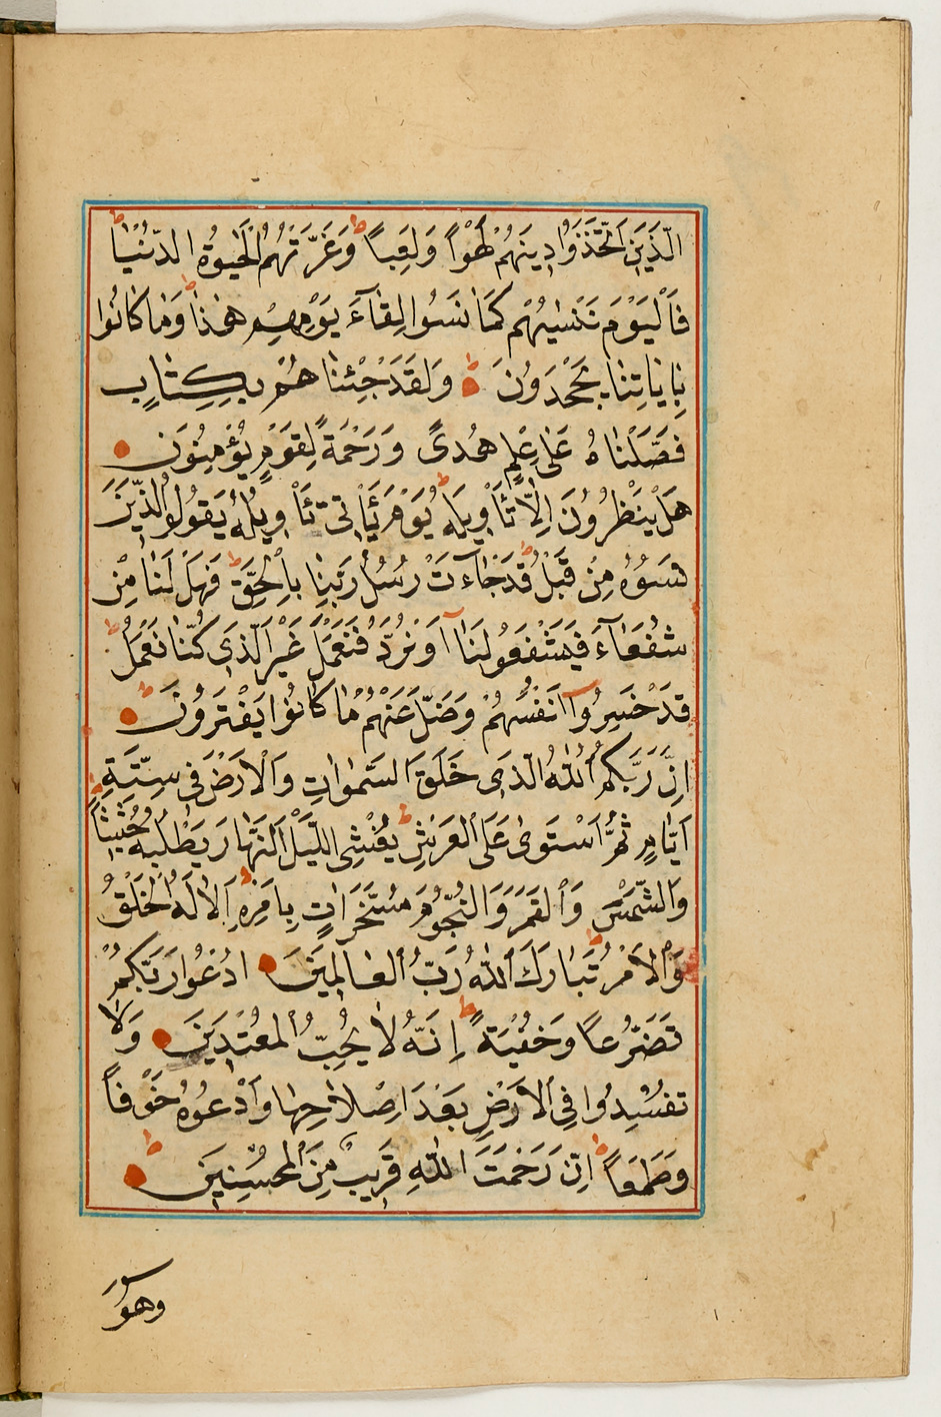 الَّذِينَ اتَّخَذُوا دِينَهُمْ لَهْوًا وَلَعِبًا ط وَغَرَّتْهُمُ الْحَيٰوةُ الدُّنْيَا ط
فَالْيَوْمَ نَنْسٰيهُمْ كَمَا نَسُوا لِقَآءَ يَوْمِهِمْ هٰذَا ط وَمَا كَانُوا
بِاٰيَاتِنَا يَجْحَدُونَ ط وَلَقَدْ جِئْنَا هُمْ بِكِتَابٍ
فَصَّلْنَاهُ عَلٰى عِلْمٍ هُدًى وَرَحْمَةً لِقَوْمٍ يُؤْمِنُونَ
هَلْ يَنْظُرُونَ اِلَّا تَاْوِيلَهُ ط يَوْمَ يَاْتِى تَاْوِيلُهُ يَقُولُ الَّذِينَ
نَسُوهُ مِنْ قَبْلُ قَدْ جَآءَتْ رُسُلُ رَبِّنَا بِالْحَقِّ ط فَهَلْ لَنَا مِنْ
شُفَعَآءَ فَيَشْفَعُوا لَنَا اَوْ نُرَدُّ فَنَعْمَلَ غَيْرَ الَّذِى كُنَّا نَعْمَلُ ط
قَدْ خَسِرُوا اَنْفُسَهُمْ وَضَلَّ عَنْهُمْ مَا كَانُوا يَفْتَرُونَ ط
اِنَّ رَبَّكُمُ اللّٰهُ الَّذِى خَلَقَ السَّمٰوَاتِ وَالْاَرْضَ فِى سِتَّةِ
اَيَّامٍ ثُمَّ اسْتَوٰى عَلَى الْعَرْشِ ط يُغْشِى اللَّيْلَ النَّهَارَ يَطْلُبُهُ حَثِيثًا
وَالشَّمْسَ وَالْقَمَرَ وَالنُّجُومَ مُسَخَّرَاتٍ بِاَمْرِهِ ط اَلَا لَهُ الْخَلْقُ
وَالْاَمْرُ ط تَبَارَكَ اللّٰهُ رَبُّ الْعَالَمِينَ ادْعُوا رَبَّكُمْ
تَضَرُّعًا وَخُفْيَةً ط اِنَّهُ لَا يُحِبُّ الْمُعْتَدِينَ وَلَا
تُفْسِدُوا فِى الْاَرْضِ بَعْدَ اِصْلَاحِهَا وَادْعُوهُ خَوْفًا
وَطَمَعًا ط اِنَّ رَحْمَتَ اللّٰهِ قَرِيبٌ مِنَ الْمُحْسِنِينَ ط
وهو